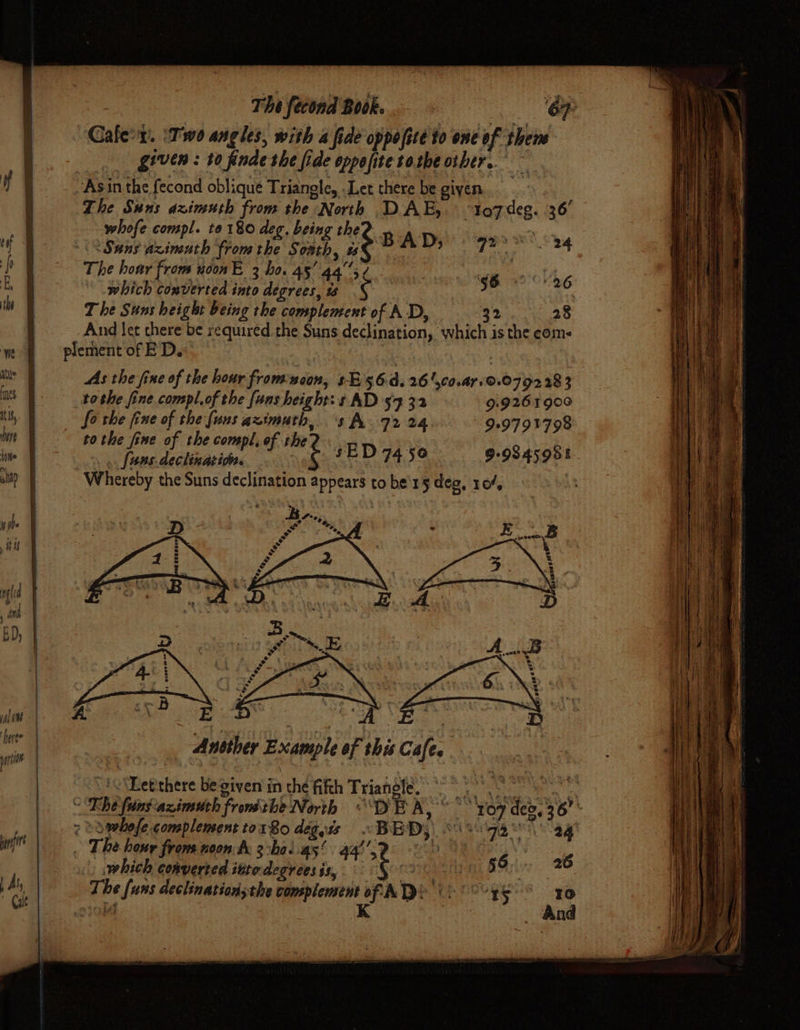 The ſecond Book. 67
Caſe 1. Two angles, with a ſide oppoſite to one of them
given : to finde the ſide oppoſite to the other.
As in the ſecond oblique Triangle, Let there be given
The Suns azimuth from the North DAE, 107 deg. 36′
whoſe compl. to 180 deg. being the
Suns azimuth from the South, is } BAD, 72 24
The hour from noon E 3 ho. 45′ 44″
which converted into degrees, is } 56 26
The Suns height being the complement of AD, 32 28
And let there be required the Suns declination, which is the com-
plement of ED.
As the ſine of the hour from noon, sE 56 d. 26′, co.ar. 0.0792283
to the ſine compl. of the ſuns height: s AD 57 32 9.9261900
ſo the ſine of the ſuns azimuth, s A 72 24 9.9791798
to the ſine of the compl. of the
ſuns declination. } sED 74 50 9.9845981
Whereby the Suns declination appears to be 15 deg. 10′,
D B A E B
1 2 3
E B A D E A D
D B E A B
4 5 6
A B E D A E D
Another Example of this Caſe.
Let there be given in the fifth Triangle.
The ſuns azimuth from the North DEA, 107 deg. 36′
whoſe complement to 180 deg. is BED, 72 24
The hour from noon A 3 ho. 45′ 44″
which converted into degrees is, } 56 26
The ſuns declination, the complement of AD 15 10
K And